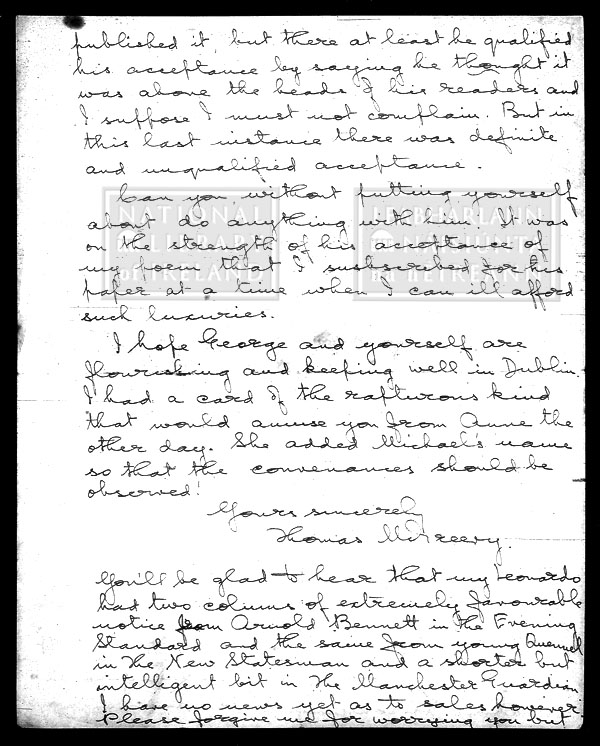 published it, but there at least he qualified
his acceptance by saying he thought it
was above the heads of his readers and
I suppose I must not complain. But in
this last instance there was definite
and unqualified acceptance.
Can you, without putting yourself
about do anything with him. It was
on the strength of his acceptance of
my poem that I subscribed for his
paper at a time when I can ill afford
such luxuries.
I hope George and yourself are
flourishing and keeping well in Dublin.
I had a card of the rapturous kind
that would amuse you from Anne the
other day. She added Michael's name
so that the convenances should be
observed!
Yours sincerely
Thomas McGreevy.
You'll be glad to hear that my Leonardo
had two columns of extremely favourable
notice from Arnold Bennett in the Evening
Standard and the same from young Quennell
in The New Statesman and a shorter but
intelligent bit in The Manchester Guardian
I have no news yet as to sales however
Please forgive me for worrying you but
NATIONAL
LIBRARY
OF IRELAND
LEABHARLANN
NÁISIÚNTA
NA HÉIREANN